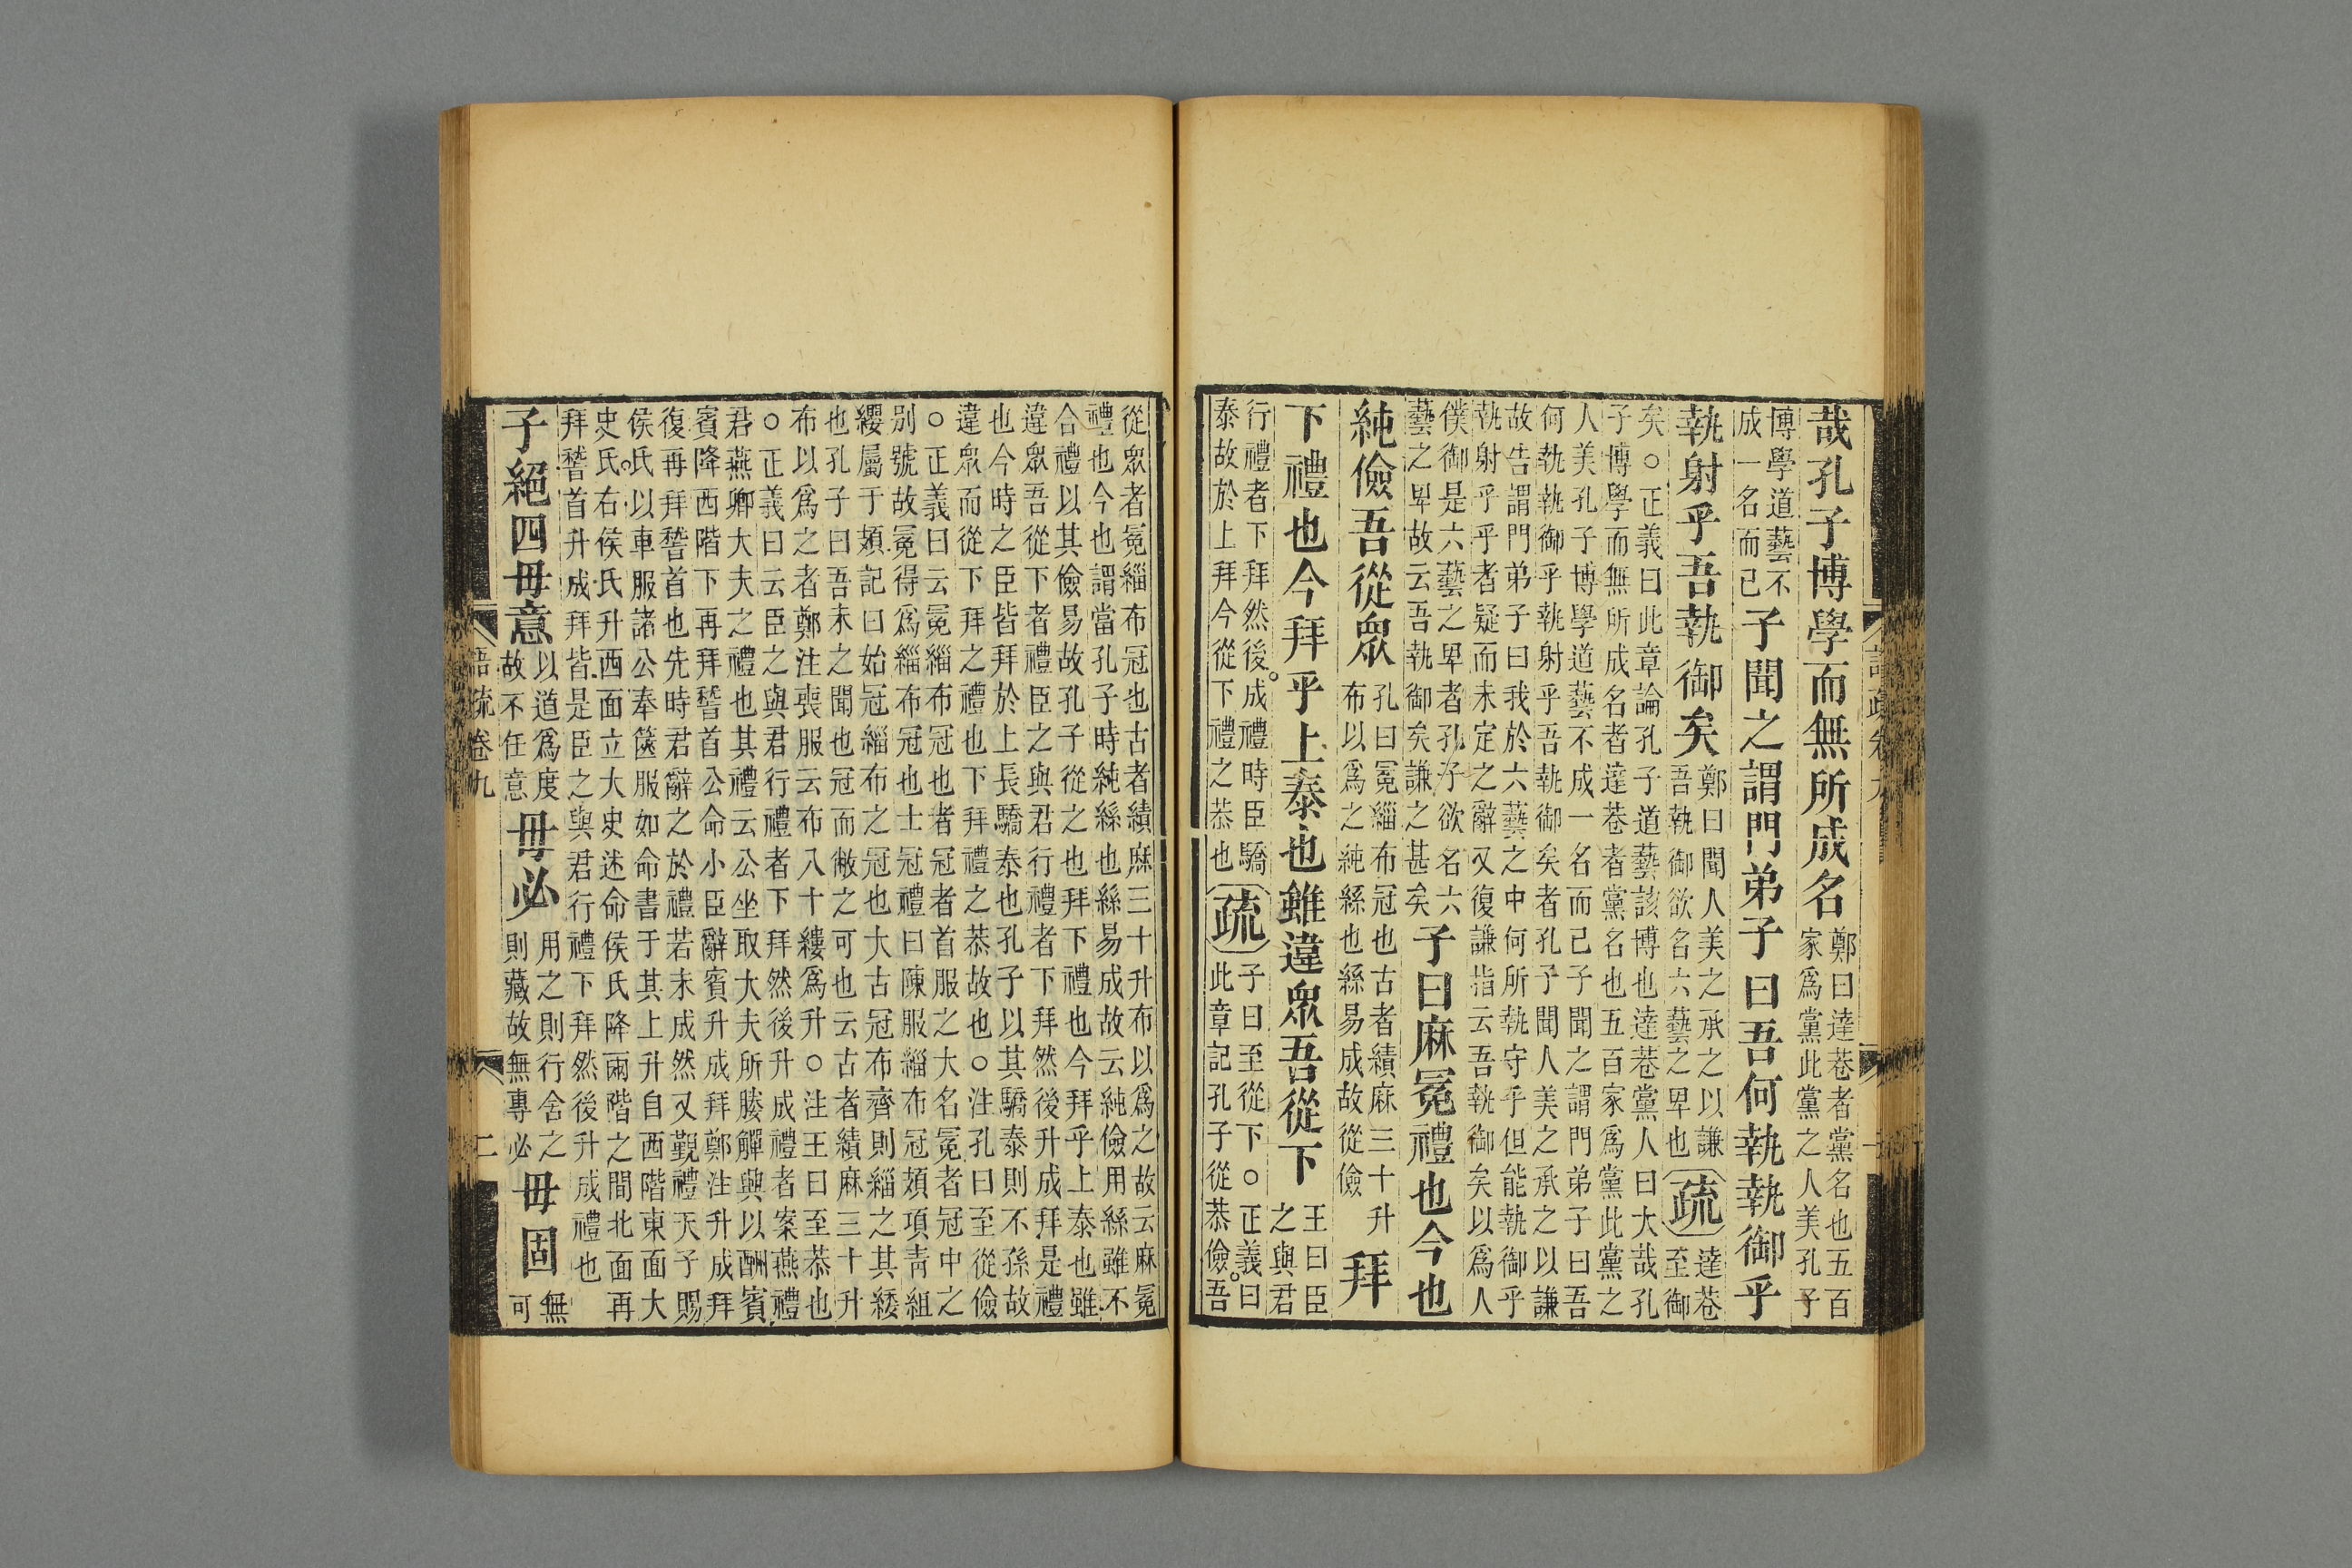 哉孔子博學而無所成名鄭曰達巷者黨名也五百
家爲黨此黨之人美孔子
博學道藝不
成一名而已子聞之謂門弟子曰吾何執執御乎
執射乎吾執御矣鄭曰聞人美之承之以謙
吾執御欲名六藝之卑也疏達巷
至御
矣○正義曰此章論孔子道藝該博也達巷黨人曰大哉孔
子博學而無所成名者達巷者黨名也五百家爲黨此黨之
人美孔子博學道藝不成一名而已子聞之謂門弟子曰吾
何執執御乎執射乎吾執御矣者孔子聞人美之承之以謙
故告謂門弟子曰我於六藝之中何所執守乎但能執御乎
執射乎乎者疑而未定之辭又復謙指云吾執御矣以爲人
僕御是六藝之卑者孔子欲名六
藝之卑故云吾執御矣謙之甚矣子曰麻冕禮也今也
純儉吾從衆孔曰冕緇布冠也古者績麻三十升
布以爲之純絲也絲易成故從儉拜
下禮也今拜乎上泰也雖違衆吾從下王曰臣
之與君
行禮者下拜然後成禮時臣驕
泰故於上拜今從下禮之恭也疏子曰至從下○正義曰
此章記孔子從恭儉吾
從衆者冕緇布冠也古者績麻三十升布以爲之故云麻冕
禮也今也謂當孔子時純絲也絲易成故云純儉用絲雖不
合禮以其儉易故孔子從之也拜下禮也今拜乎上泰也雖
違衆吾從下者禮臣之與君行禮者下拜然後升成拜是禮
也今時之臣皆拜於上長驕泰也孔子以其驕泰則不孫故
違衆而從下拜之禮也下拜禮之恭故也○注孔曰至從儉
○正義曰云冕緇布冠也者冠者首服之大名冕者冠中之
別號故冕得爲緇布冠也士冠禮曰陳服緇布冠頍項青組
纓屬于頍記曰始冠緇布之冠也大古冠布齊則緇之其緌
也孔子曰吾未之聞也冠而敝之可也云古者績麻三十升
布以爲之者鄭注喪服云布八十縷爲升○注王曰至恭也
○正義曰云臣之與君行禮者下拜然後升成禮者案燕禮
君燕卿大夫之禮也其禮云公坐取大夫所媵觶興以酬賓
賓降西階下再拜稽首公命小臣辭賓升成拜鄭注升成拜
復再拜稽首也先時君辭之於禮若未成然又覲禮天子賜
侯氏以車服諸公奉篋服如命書于其上升自西階東面大
史氏右侯氏升西面立大史述命侯氏降兩階之間北面再
拜稽首升成拜皆是臣之與君行禮下拜然後升成禮也
子絕四毋意以道爲度
故不任意毋必用之則行舍之
則藏故無專必毋固無
可
語疏卷九
二